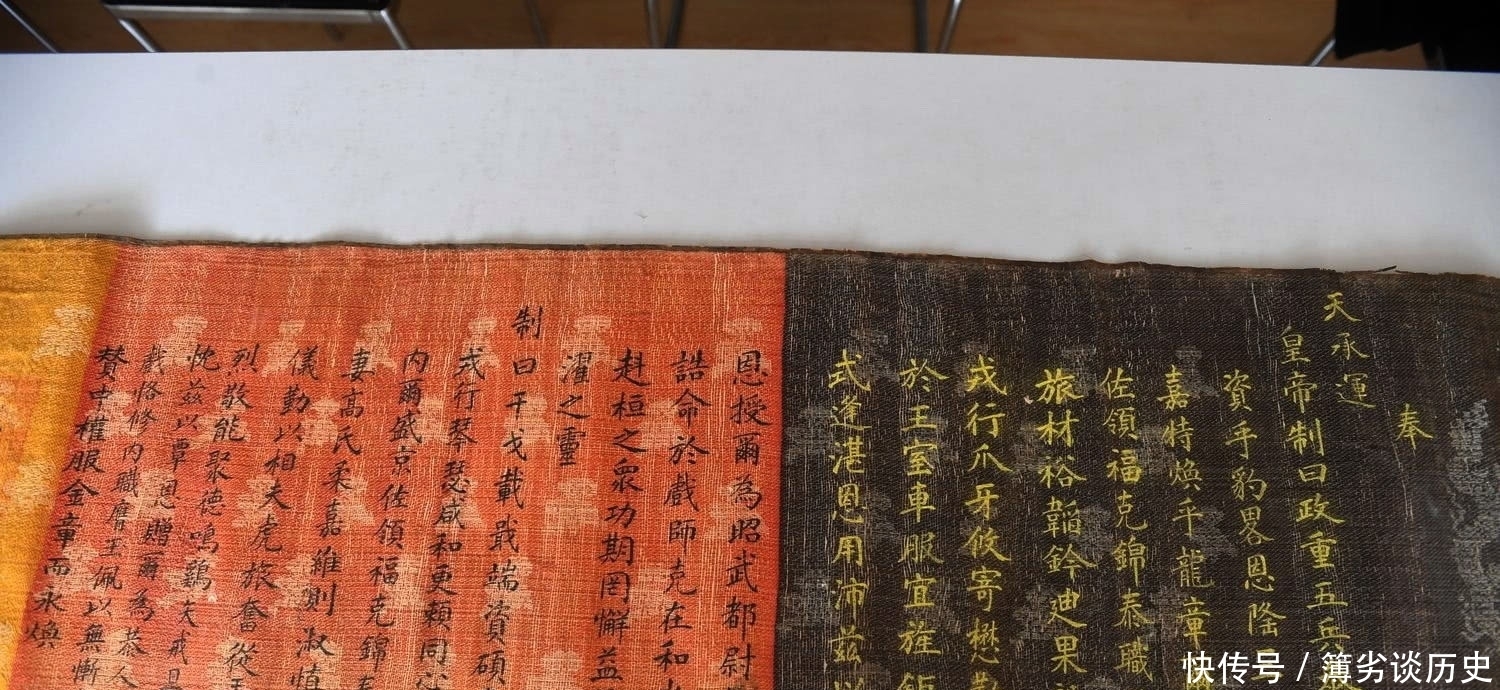 奉
天承運
皇帝制曰政重五丘
資乎豹畧恩隆
嘉特煥乎龍章
佐領福克錦泰職
旅材裕韜鈐廸果
戎行爪牙攸寄懋
於王室車服宜旌
式逢湛恩用沛兹以
恩授爾為昭武都尉
誥命於戲師克在和
赳桓之衆功期罔懈益
濯之靈
制曰干戈載戢端資碩
戎行琴瑟咸和更賴同
內爾盛京佐領福克錦
妻高氏柔嘉維則淑慎
儀勤以相夫虎旅奮從
烈敬能聚德鳴鷄夫戒旦
忱兹以覃恩贈爾為恭人
戲恪修內職膺玉佩以無慚
贊中權服金章而永煥
快传号 / 簿劣谈历史